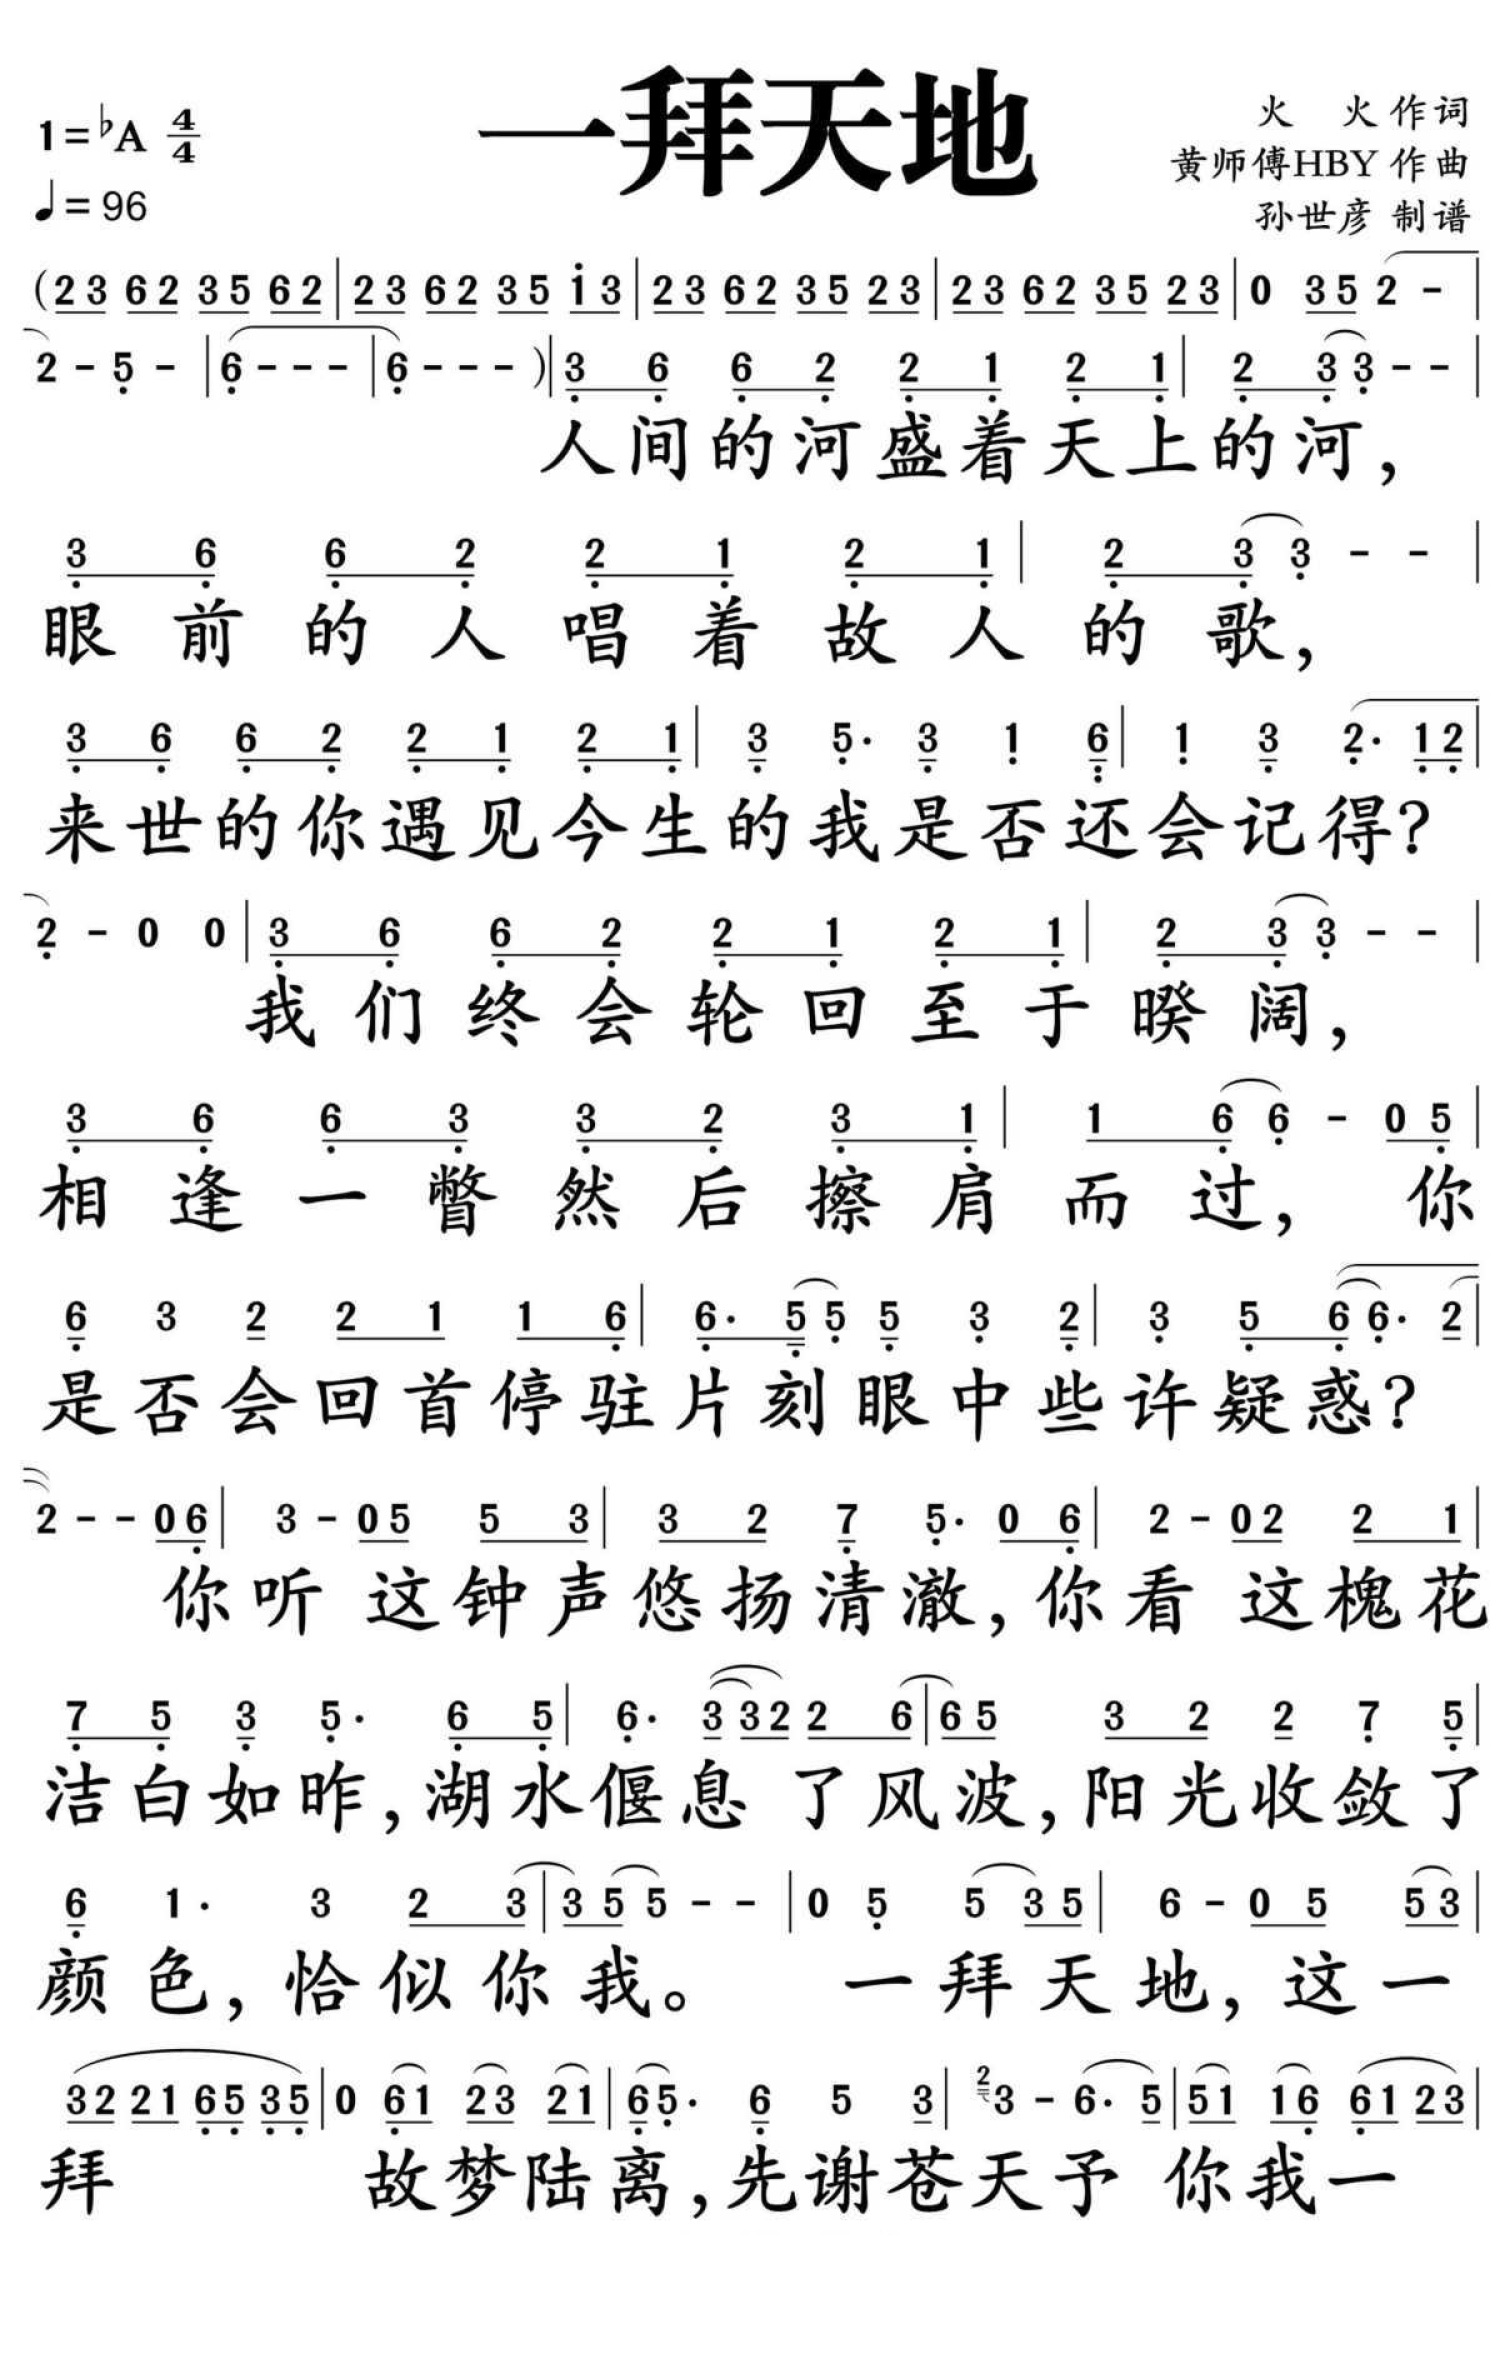 一拜天地
1=♭A 4/4
♩=96
火 火 作词
黄师傅HBY 作曲
孙世彦 制谱
(23 62 35 62|23 62 35 i3|23 62 35 23|23 62 35 23|0 35 2 -|
2 - 5 -|6 - - -|6 - - -)|3 6 6 2 2 1 2 1|2 3 3 - -|
人间的河盛着天上的河，
3 6 6 2 2 1 2 1|2 3 3 - -|
眼前的人唱着故人的歌，
3 6 6 2 2 1 2 1|3 5· 3 1 6|1 3 2· 12|
来世的你遇见今生的我是否还会记得？
2 - 0 0|3 6 6 2 2 1 2 1|2 3 3 - -|
我们终会轮回至于暌阔，
3 6 6 3 3 2 3 1|1 6 6 - 0 5|
相逢一瞥然后擦肩而过， 你
6 3 2 2 1 1 6|6· 5 5 5 3 2|3 5 6 6· 2|
是否会回首停驻片刻眼中些许疑惑？
2 - - 06|3 - 05 5 3|3 2 7 5· 0 6|2 - 02 2 1|
你听 这钟声悠扬清澈，你看 这槐花
7 5 3 5· 6 5|6· 3 32 2 6|65 3 2 2 7 5|
洁白如昨，湖水偃息 了风波，阳光收敛了
6 1· 3 2 3|3 5 5 - -|0 5 5 35|6 - 0 5 53|
颜色，恰似你我。 一拜天地，这一
32 21 65 35|0 61 23 21|65· 6 5 3|2 3 - 6· 5|51 16 61 23|
拜 故梦陆离，先谢苍天予 你我一